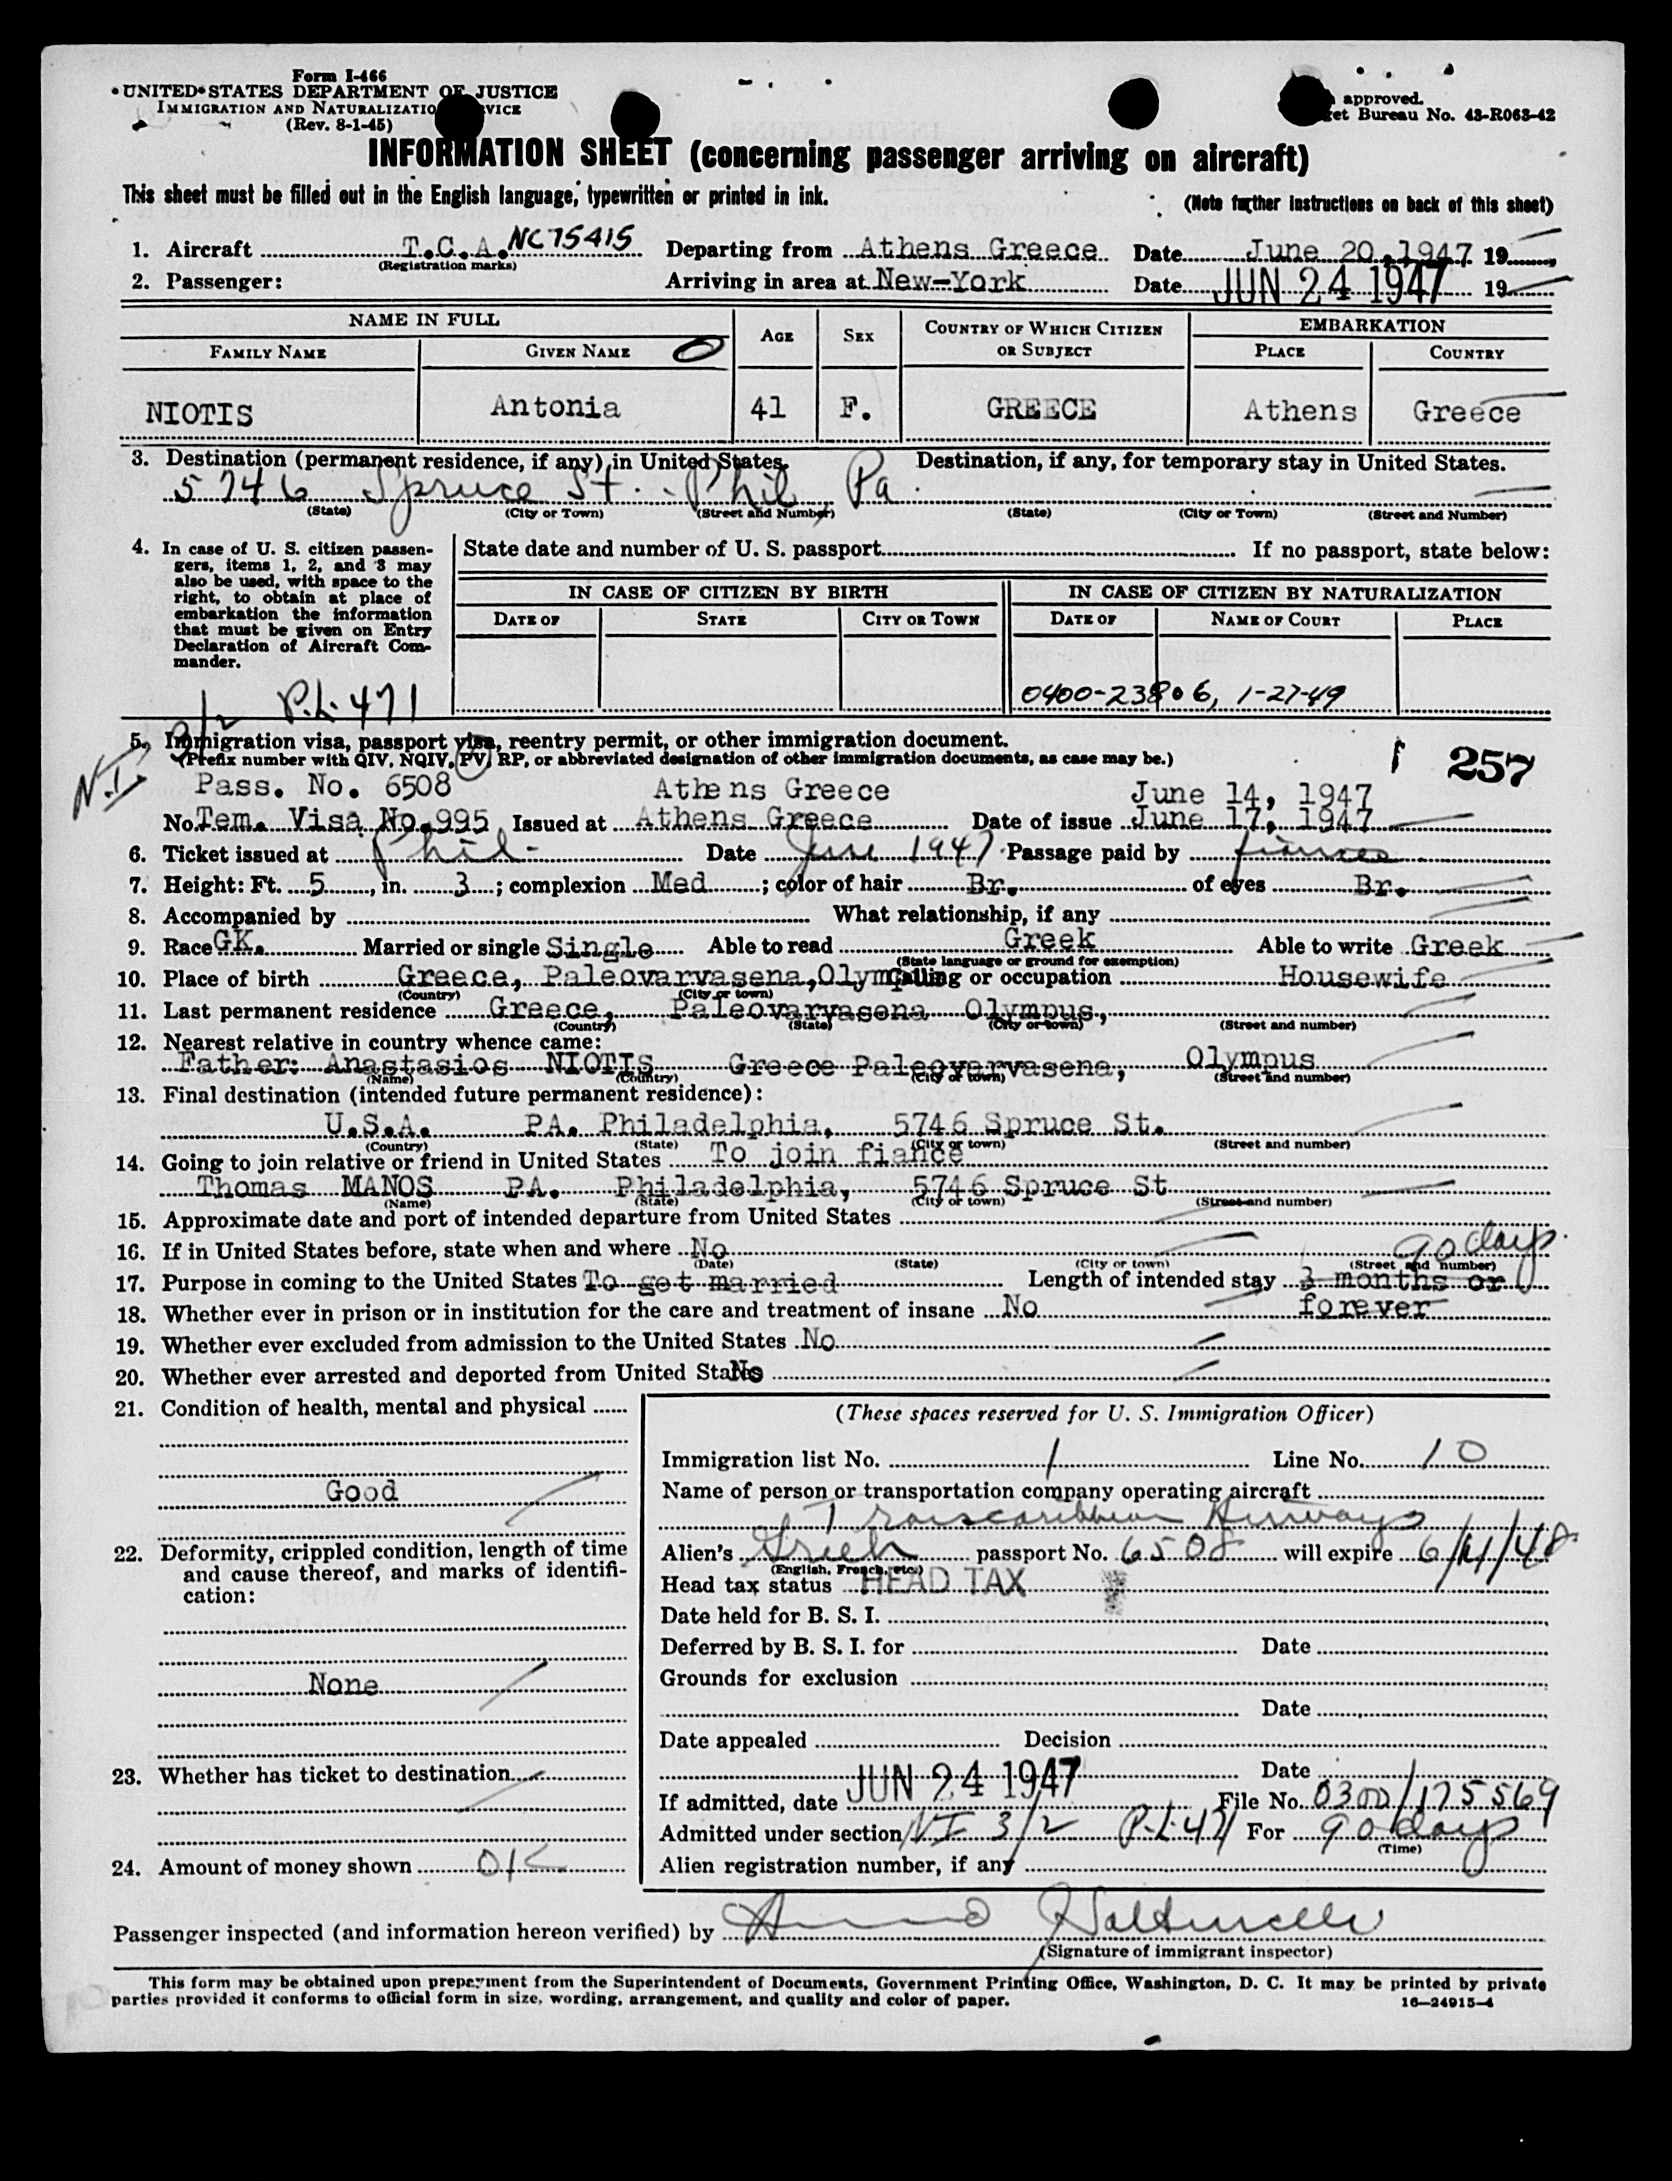 Form I-466
UNITED STATES DEPARTMENT OF JUSTICE
IMMIGRATION AND NATURALIZATIO VICE
(Rev. 8-1-45)
approved.
et Bureau No. 43-R063-42
INFORMATION SHEET (concerning passenger arriving on aircraft)
This sheet must be filled out in the English language, typewritten or printed in ink.
(Note further instructions on back of this sheet)
1. Aircraft T.C.A. NC75415 Departing from Athens Greece Date June 20, 1947 19
(Registration marks)
2. Passenger: Arriving in area at New-York Date JUN 24 1947 19
NAME IN FULL AGE SEX COUNTRY OF WHICH CITIZEN OR SUBJECT EMBARKATION
FAMILY NAME GIVEN NAME PLACE COUNTRY
NIOTIS Antonia 41 F. GREECE Athens Greece
3. Destination (permanent residence, if any) in United States. Destination, if any, for temporary stay in United States.
5746 Spruce St. - Phil Pa.
(State) (City or Town) (Street and Number) (State) (City or Town) (Street and Number)
4. In case of U. S. citizen passengers, items 1, 2, and 3 may also be used, with space to the right, to obtain at place of embarkation the information that must be given on Entry Declaration of Aircraft Commander.
State date and number of U. S. passport If no passport, state below:
IN CASE OF CITIZEN BY BIRTH IN CASE OF CITIZEN BY NATURALIZATION
DATE OF STATE CITY OR TOWN DATE OF NAME OF COURT PLACE
0400-23806, 1-27-49
3/2 P.L. 471
5. Immigration visa, passport visa, reentry permit, or other immigration document.
(Prefix number with QIV, NQIV, PV, RP, or abbreviated designation of other immigration documents, as case may be.)
N.I. 257
Pass. No. 6508 Athens Greece June 14, 1947
No. Tem. Visa No. 995 Issued at Athens Greece Date of issue June 17, 1947
6. Ticket issued at Phil- Date June 1947 Passage paid by fiancee
7. Height: Ft. 5, in. 3; complexion Med; color of hair Br. of eyes Br.
8. Accompanied by What relationship, if any
9. Race GK. Married or single Single Able to read Greek Able to write Greek
(State language or ground for exemption)
10. Place of birth Greece, Paleovarvasena, Olympus Calling or occupation Housewife
(Country) (City or town)
11. Last permanent residence Greece, Paleovaryasena Olympus,
(Country) (State) (City or town) (Street and number)
12. Nearest relative in country whence came:
Father: Anastasios NIOTIS Greece Paleovarvasena, Olympus
(Name) (Country) (City or town) (Street and number)
13. Final destination (intended future permanent residence):
U.S.A. PA. Philadelphia, 5746 Spruce St.
(Country) (State) (City or town) (Street and number)
14. Going to join relative or friend in United States To join fiance
Thomas MANOS PA. Philadelphia, 5746 Spruce St
(Name) (State) (City or town) (Street and number)
15. Approximate date and port of intended departure from United States
16. If in United States before, state when and where No 90 days.
(Date) (State) (City or town) (Street and number)
17. Purpose in coming to the United States To get married Length of intended stay 3 months or
forever
18. Whether ever in prison or in institution for the care and treatment of insane No
19. Whether ever excluded from admission to the United States No
20. Whether ever arrested and deported from United States No
21. Condition of health, mental and physical
Good
22. Deformity, crippled condition, length of time and cause thereof, and marks of identification:
None
23. Whether has ticket to destination
24. Amount of money shown OK
(These spaces reserved for U. S. Immigration Officer)
Immigration list No. 1 Line No. 10
Name of person or transportation company operating aircraft
Transcaribbean Airways
Alien's Greek passport No. 6508 will expire 6/14/48
(English, French, etc.)
Head tax status HEAD TAX
Date held for B. S. I.
Deferred by B. S. I. for Date
Grounds for exclusion
Date
Date appealed Decision
Date
If admitted, date JUN 24 1947 File No. 0300/175569
Admitted under section NI 3/2 P.L. 471 For 90 days
(Time)
Alien registration number, if any
Passenger inspected (and information hereon verified) by
(Signature of immigrant inspector)
This form may be obtained upon prepayment from the Superintendent of Documents, Government Printing Office, Washington, D. C. It may be printed by private
parties provided it conforms to official form in size, wording, arrangement, and quality and color of paper.
16—24915-4